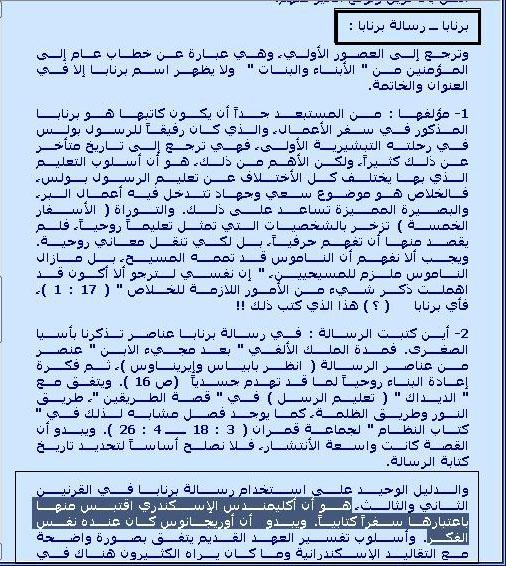 برنابا ــ رسالة برنابا :
وترجع إلى العصور الأولى، وهي عبارة عن خطاب عام إلى
المؤمنين من " الأبناء والبنات " ولا يظهر اسم برنابا إلا في
العنوان والخاتمة.
1- مؤلفها : من المستبعد جداً أن يكون كاتبها هو برنابا
المذكور في سفر الأعمال، والذي كان رفيقاً للرسول بولس
في رحلته التبشيرية الأولى، فهي ترجع إلى تاريخ متأخر
عن ذلك كثيراً، ولكن الأهم من ذلك، هو أن أسلوب التعليم
الذي بها يختلف كل الأختلاف عن تعليم الرسول بولس،
فالخلاص هو موضوع سعي وجهاد تتدخل فيه أعمال البر،
والبصيرة المميزة تساعد على ذلك. والتوراة ( الأسفار
الخمسة ) تزخر بالشخصيات التي تمثل تعليماً روحياً، فلم
يقصد منها أن تفهم حرفياً، بل لكي تنقل معاني روحية.
ويجب ألا نفهم أن الناموس قد تممه المسيح، بل مازال
الناموس ملزم للمسيحيين، " إن نفسي لترجو ألا أكون قد
اهملت ذكر شيء من الأمور اللازمة للخلاص " ( 17 : 1 )،
فأي برنابا ( ؟ ) هذا الذي كتب ذلك !!
2- أين كتبت الرسالة : في رسالة برنابا عناصر تذكرنا بأسيا
الصغرى. فمدة الملك الألفي " بعد مجيء الابن " عنصر
من عناصر الرسالة ( انظر بابياس وإيريناوس )، ثم فكرة
إعادة البناء روحياً لما قد تهدم جسدياً (ص 16 ). ويتفق مع
" الديداك " ( تعليم الرسل ) في " قصة الطريقين "، طريق
النور وطريق الظلمة، كما يوجد فصل مشابه لذلك في "
كتاب النظام " لجماعة قمران ( 3 : 18 ــ 4 : 26 ). ويبدو أن
القصة كانت واسعة الأنتشار، فلا تصلح أساساً لتحديد تاريخ
كتابة الرسالة.
والدليل الوحيد على استخدام رسالة برنابا في القرنين
الثاني والثالث، هو أن أكليمندس الإسكندري اقتبس منها
باعتبارها سفراً كتابياً. ويبدو أن أوريجانوس كان عنده نفس
الفكر. وأسلوب تفسير العهد القديم يتفق بصورة واضحة
مع التقاليد الإسكندرانية وما كان يراه الكثيرون هناك في